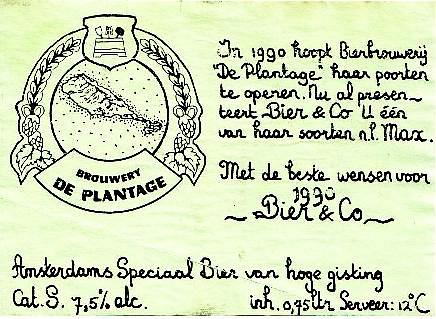 BROUWERY
DE PLANTAGE
In 1990 hoopt Bierbrouwerij
"De Plantage" haar poorten
te openen. Nu al presen-
teert Bier & Co U één
van haar soorten n.l. Max.
Met de beste wensen voor
1990
~ Bier & Co ~
Amsterdams Speciaal Bier van hoge gisting
Cat. S. 7,5% alc. inh. 0,75 ltr Serveer: 12°C